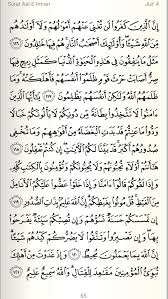 Surat Aal-E-Imran Juz' 4
إِنَّ ٱلَّذِينَ كَفَرُواْ لَن تُغْنِيَ عَنْهُمْ أَمْوَٰلُهُمْ وَلَآ أَوْلَٰدُهُم
مِّنَ ٱللَّهِ شَيْـًٔا وَأُوْلَٰٓئِكَ أَصْحَٰبُ ٱلنَّارِ هُمْ فِيهَا خَٰلِدُونَ ١١٦
مَثَلُ مَا يُنفِقُونَ فِي هَٰذِهِ ٱلْحَيَوٰةِ ٱلدُّنْيَا كَمَثَلِ رِيحٍ فِيهَا
صِرٌّ أَصَابَتْ حَرْثَ قَوْمٍ ظَلَمُوٓاْ أَنفُسَهُمْ فَأَهْلَكَتْهُ وَمَا
ظَلَمَهُمُ ٱللَّهُ وَلَٰكِنْ أَنفُسَهُمْ يَظْلِمُونَ ١١٧ يَٰٓأَيُّهَا ٱلَّذِينَ
ءَامَنُواْ لَا تَتَّخِذُواْ بِطَانَةً مِّن دُونِكُمْ لَا يَأْلُونَكُمْ خَبَالًا
وَدُّواْ مَا عَنِتُّمْ قَدْ بَدَتِ ٱلْبَغْضَآءُ مِنْ أَفْوَٰهِهِمْ وَمَا تُخْفِي
صُدُورُهُمْ أَكْبَرُ قَدْ بَيَّنَّا لَكُمُ ٱلْـَٔايَٰتِ إِن كُنتُمْ تَعْقِلُونَ ١١٨
هَٰٓأَنتُمْ أُوْلَآءِ تُحِبُّونَهُمْ وَلَا يُحِبُّونَكُمْ وَتُؤْمِنُونَ بِٱلْكِتَٰبِ كُلِّهِۦ
وَإِذَا لَقُوكُمْ قَالُوٓاْ ءَامَنَّا وَإِذَا خَلَوْاْ عَضُّواْ عَلَيْكُمُ ٱلْأَنَامِلَ
مِنَ ٱلْغَيْظِ قُلْ مُوتُواْ بِغَيْظِكُمْ إِنَّ ٱللَّهَ عَلِيمٌۢ بِذَاتِ ٱلصُّدُورِ ١١٩
إِن تَمْسَسْكُمْ حَسَنَةٌ تَسُؤْهُمْ وَإِن تُصِبْكُمْ سَيِّئَةٌ يَفْرَحُواْ
بِهَا وَإِن تَصْبِرُواْ وَتَتَّقُواْ لَا يَضُرُّكُمْ كَيْدُهُمْ شَيْـًٔا
إِنَّ ٱللَّهَ بِمَا يَعْمَلُونَ مُحِيطٌ ١٢٠ وَإِذْ غَدَوْتَ مِنْ أَهْلِكَ
تُبَوِّئُ ٱلْمُؤْمِنِينَ مَقَٰعِدَ لِلْقِتَالِ وَٱللَّهُ سَمِيعٌ عَلِيمٌ ١٢١
65